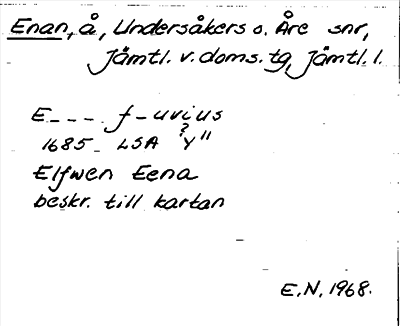 Enan, å, Undersåkers o. Åre snr,
Jämtl. v. doms. tg, Jämtl. l.
E---- f-uvius
1685- LSA ? Y"
Elfwen Eena
beskr. till kartan
E.N. 1968.